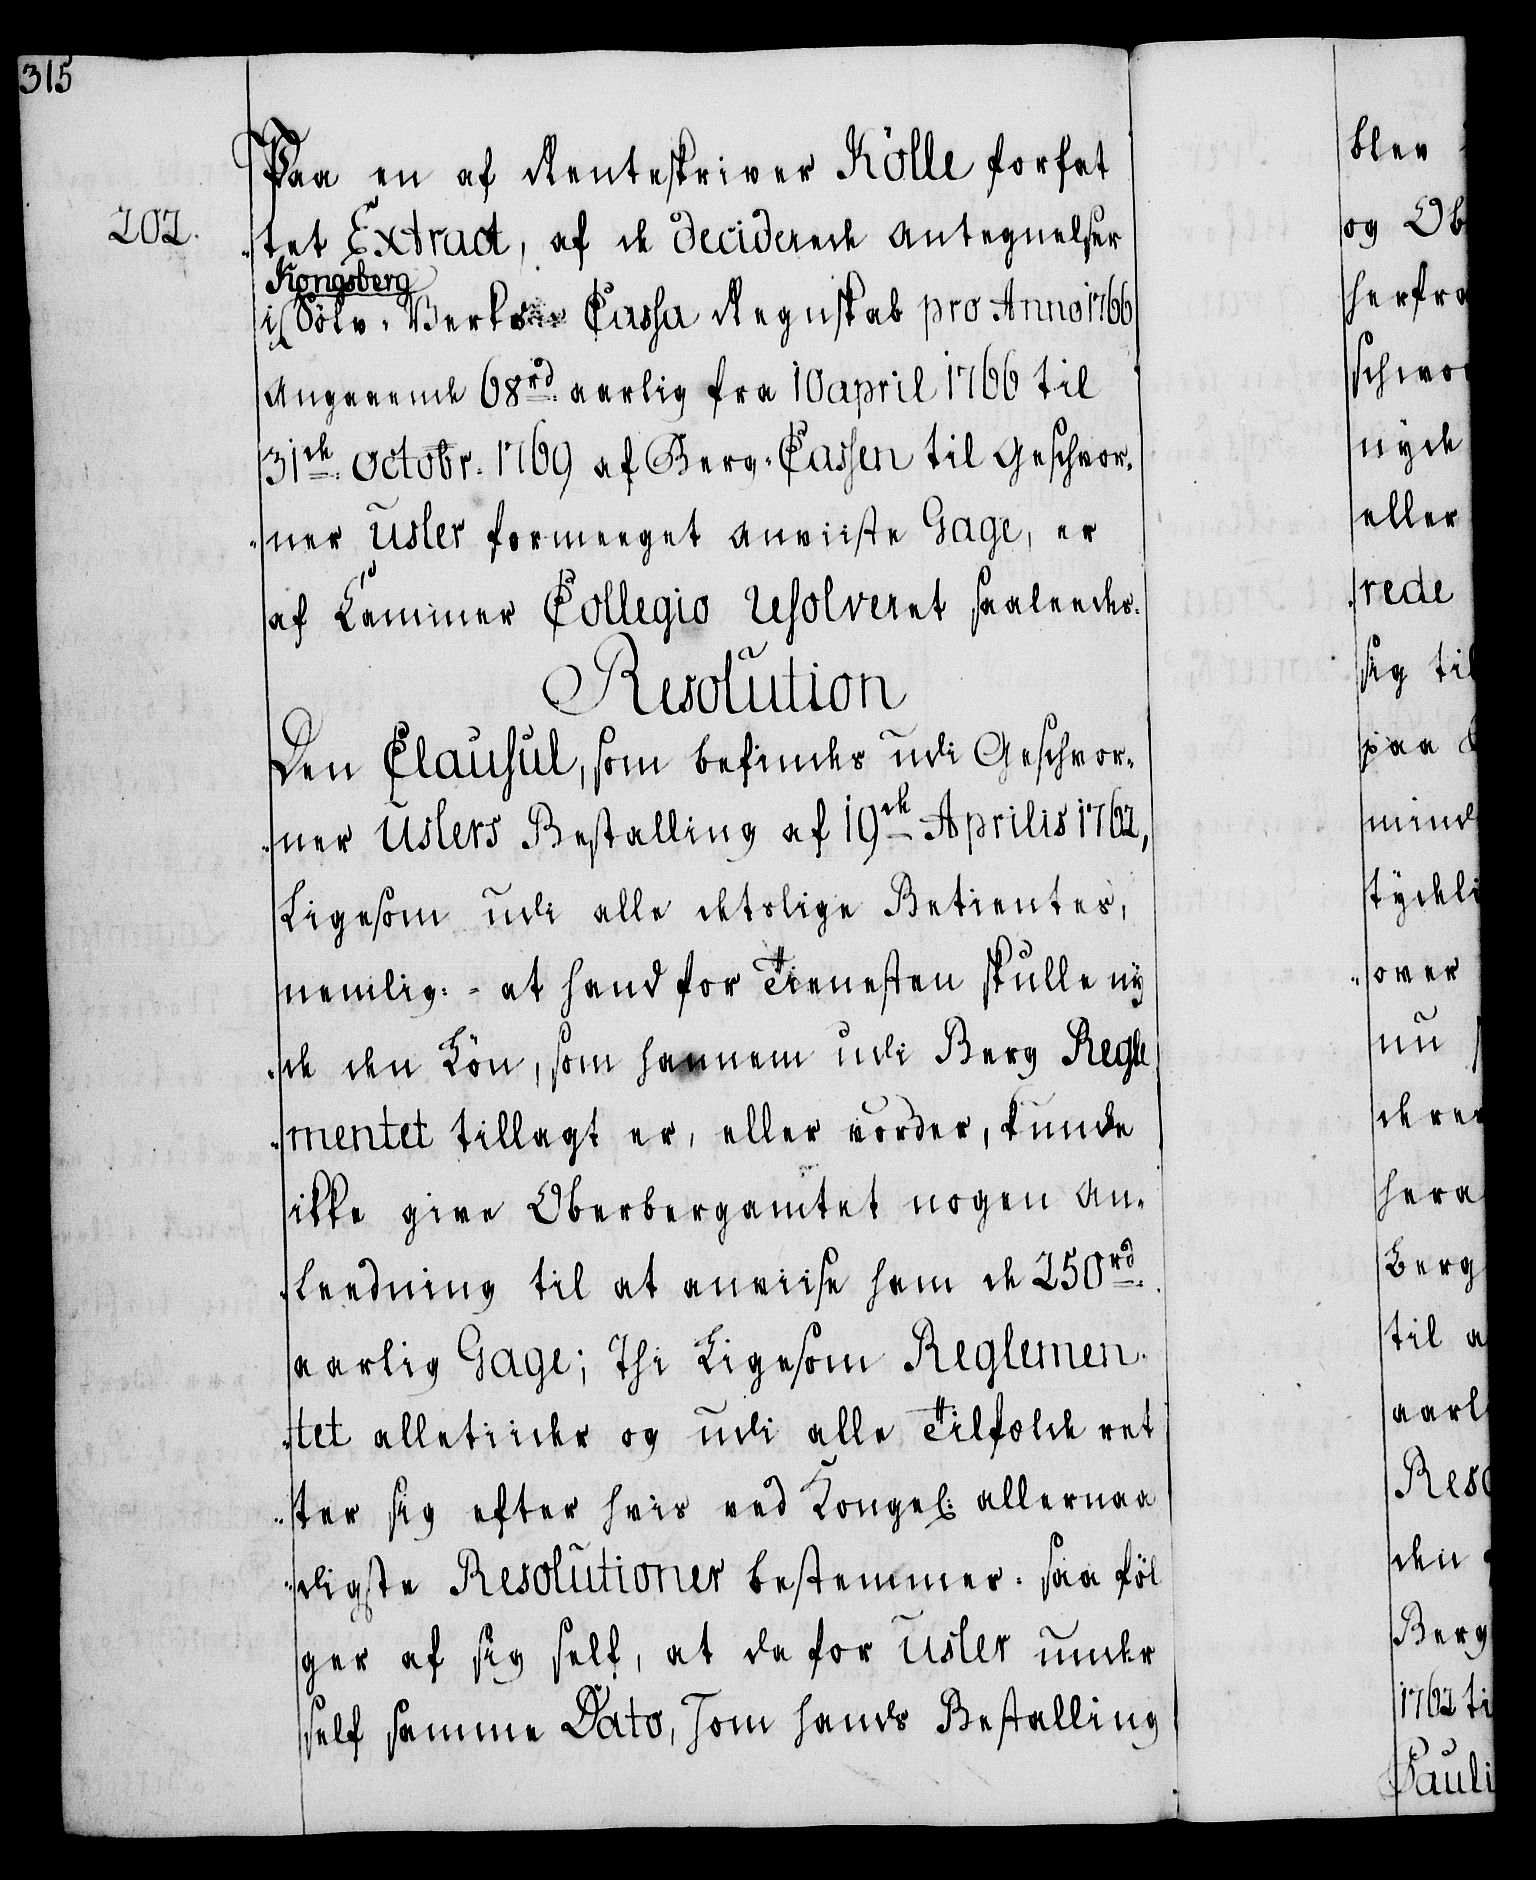 315
202.
Paa en af Renteskriver Kölle forfat
tet Extract, af de deciderede Antegnelser
Kongsberg
i Sölv-Verks Cassa Regnskab pro Anno 1766
Angaaende 68rd. aarlig fra 10 april 1766 til
31de. Octobr. 1769 af Berg-Cassen til Geschvor-
ner Usler formeeget anviiste Gage, er
af Cammer Collegio Resolveret saaleedes.
Resolution
Den Clausul, som befindes udi Geschvor-
ner Uslers Bestalling af 19de Aprilis 1762,
Ligesom udi alle detslige Betientes,
nemlig: - at hand for Tienesten skulle ny
de den Lön, som hannem udi Berg Regle
mentet tillagt er, eller vorder, kunde
ikke give Oberbergamtet nogen An-
leedning til at anviise ham de 250rd.
aarlig Gage; Thi Ligesom Reglemen-
tet alletiider og udi alle Tilfælde ret
ter sig efter hvis ved Kongel: allernaa
digste Resolutioner bestemmer. saa föl
ger af sig self, at da for Usler under
self samme Dato, som hands Bestalling
blev
og Ob
herfra
schwo
nyde
eller
rede
sig til
paa
mind
tydeli
over
nu
deres
hera
Berg
til a
aarl
Reso
den
Berg
1762 ti
Pauli